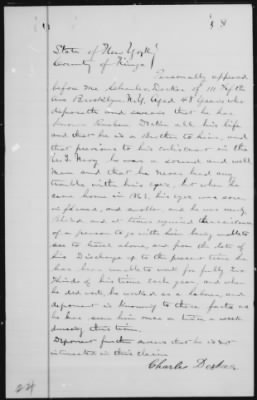 8
State of New York }
County of Kings }
Personally appeared
before me Charles Decker of 111 Nefth
Ave Brooklyn N.Y. Aged 48 years who
deposeth and swears that he has
known Decker all his life
and that he is a brother to him, and
that previous to his enlistment in the
U.S. Navy he was a sound and well
man and that he never had any
trouble with his eyes, but when he
came home in 1861, his eyes were
inflamed, and matter, and he was nearly
blind and at times required the assistance
of a person to go with him being unable
see to travel alone, and from the date of
his Discharge up to the present time he
has been unable to work for fully two
thirds of his time Each year, and when
he did work, he worked as a laborer, and
deponent is knowing to these facts as
he has seen him once or twice a week
during this time.
Deponent further swears that he is not
interested in this claim
Charles Decker